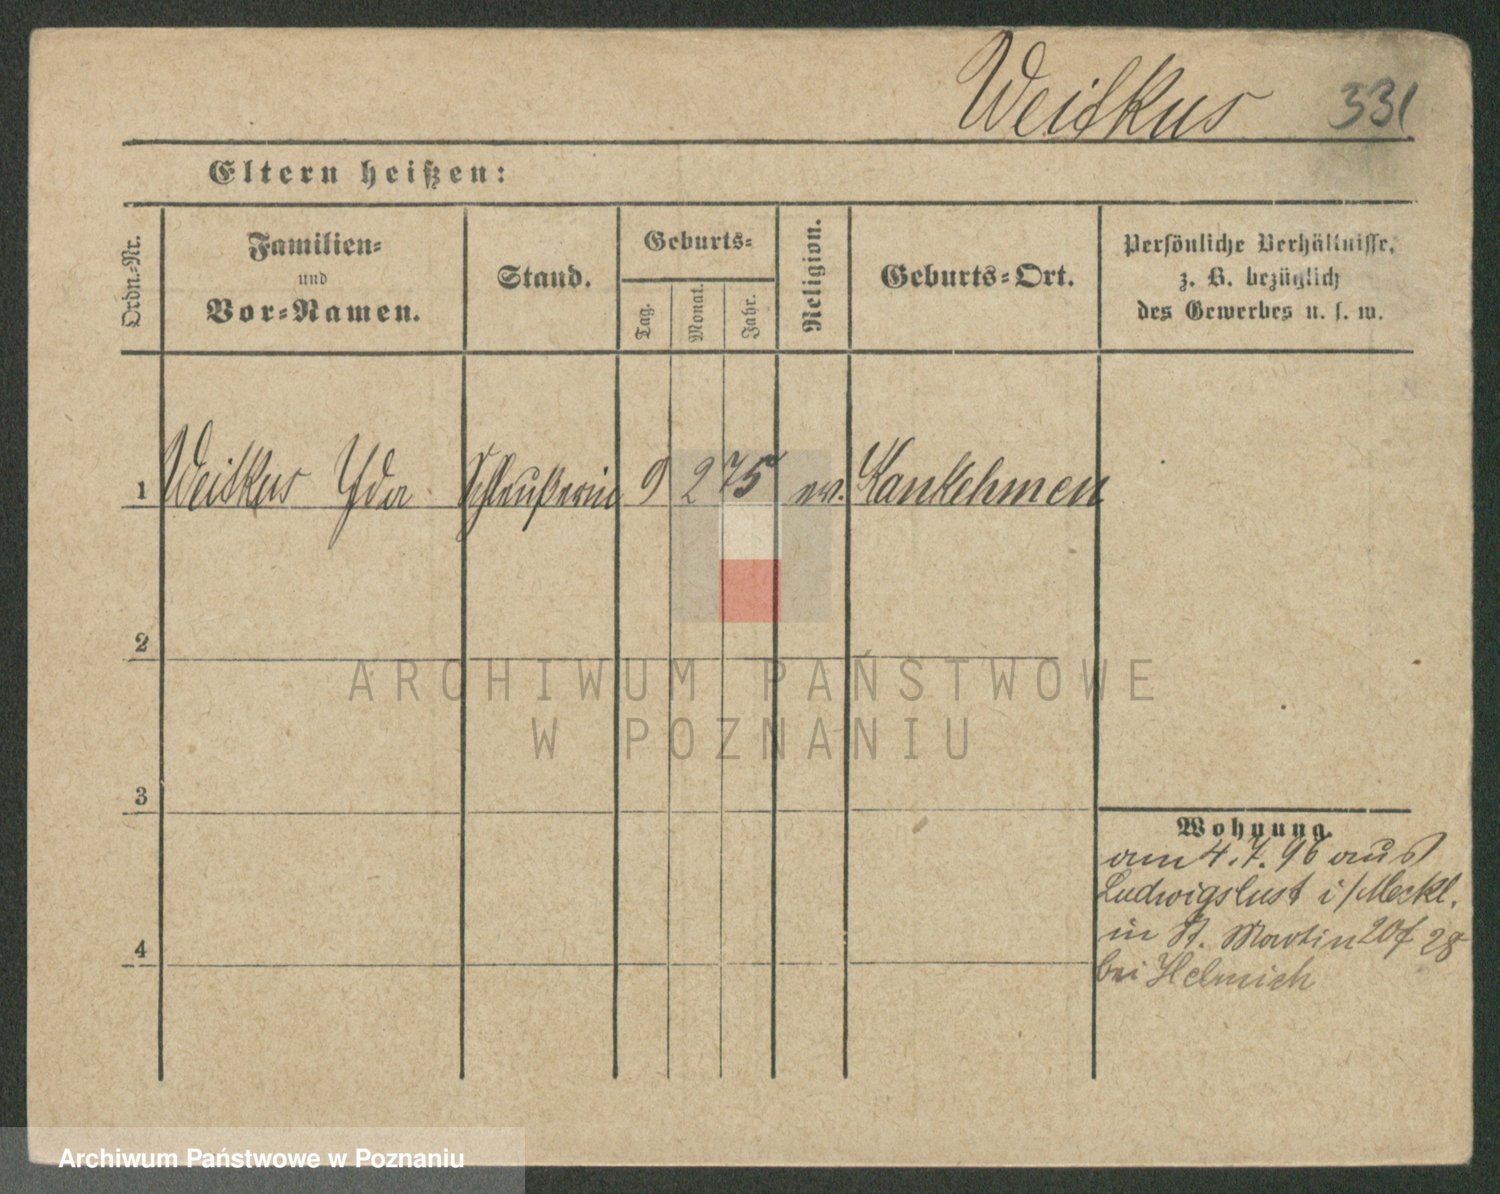 Weitkus 331
Eltern heißen:
Ordn.-Nr.
Familien-
und
Vor-Namen.
Stand.
Geburts-
Tag.
Monat.
Jahr.
Religion.
Geburts-Ort.
Persönliche Verhältnisse,
z. B. bezüglich
des Gewerbes u. s. w.
1 Weitkus Ida Schleußerin 9 2 75 ev. Kaukehmen
2
3
4
Wohnung.
am 4.7.96 aus
Ludwigslust i/Meckl.
in St. Martin 28
bei Helmich
ARCHIWUM PAŃSTWOWE
W POZNANIU
Archiwum Państwowe w Poznaniu